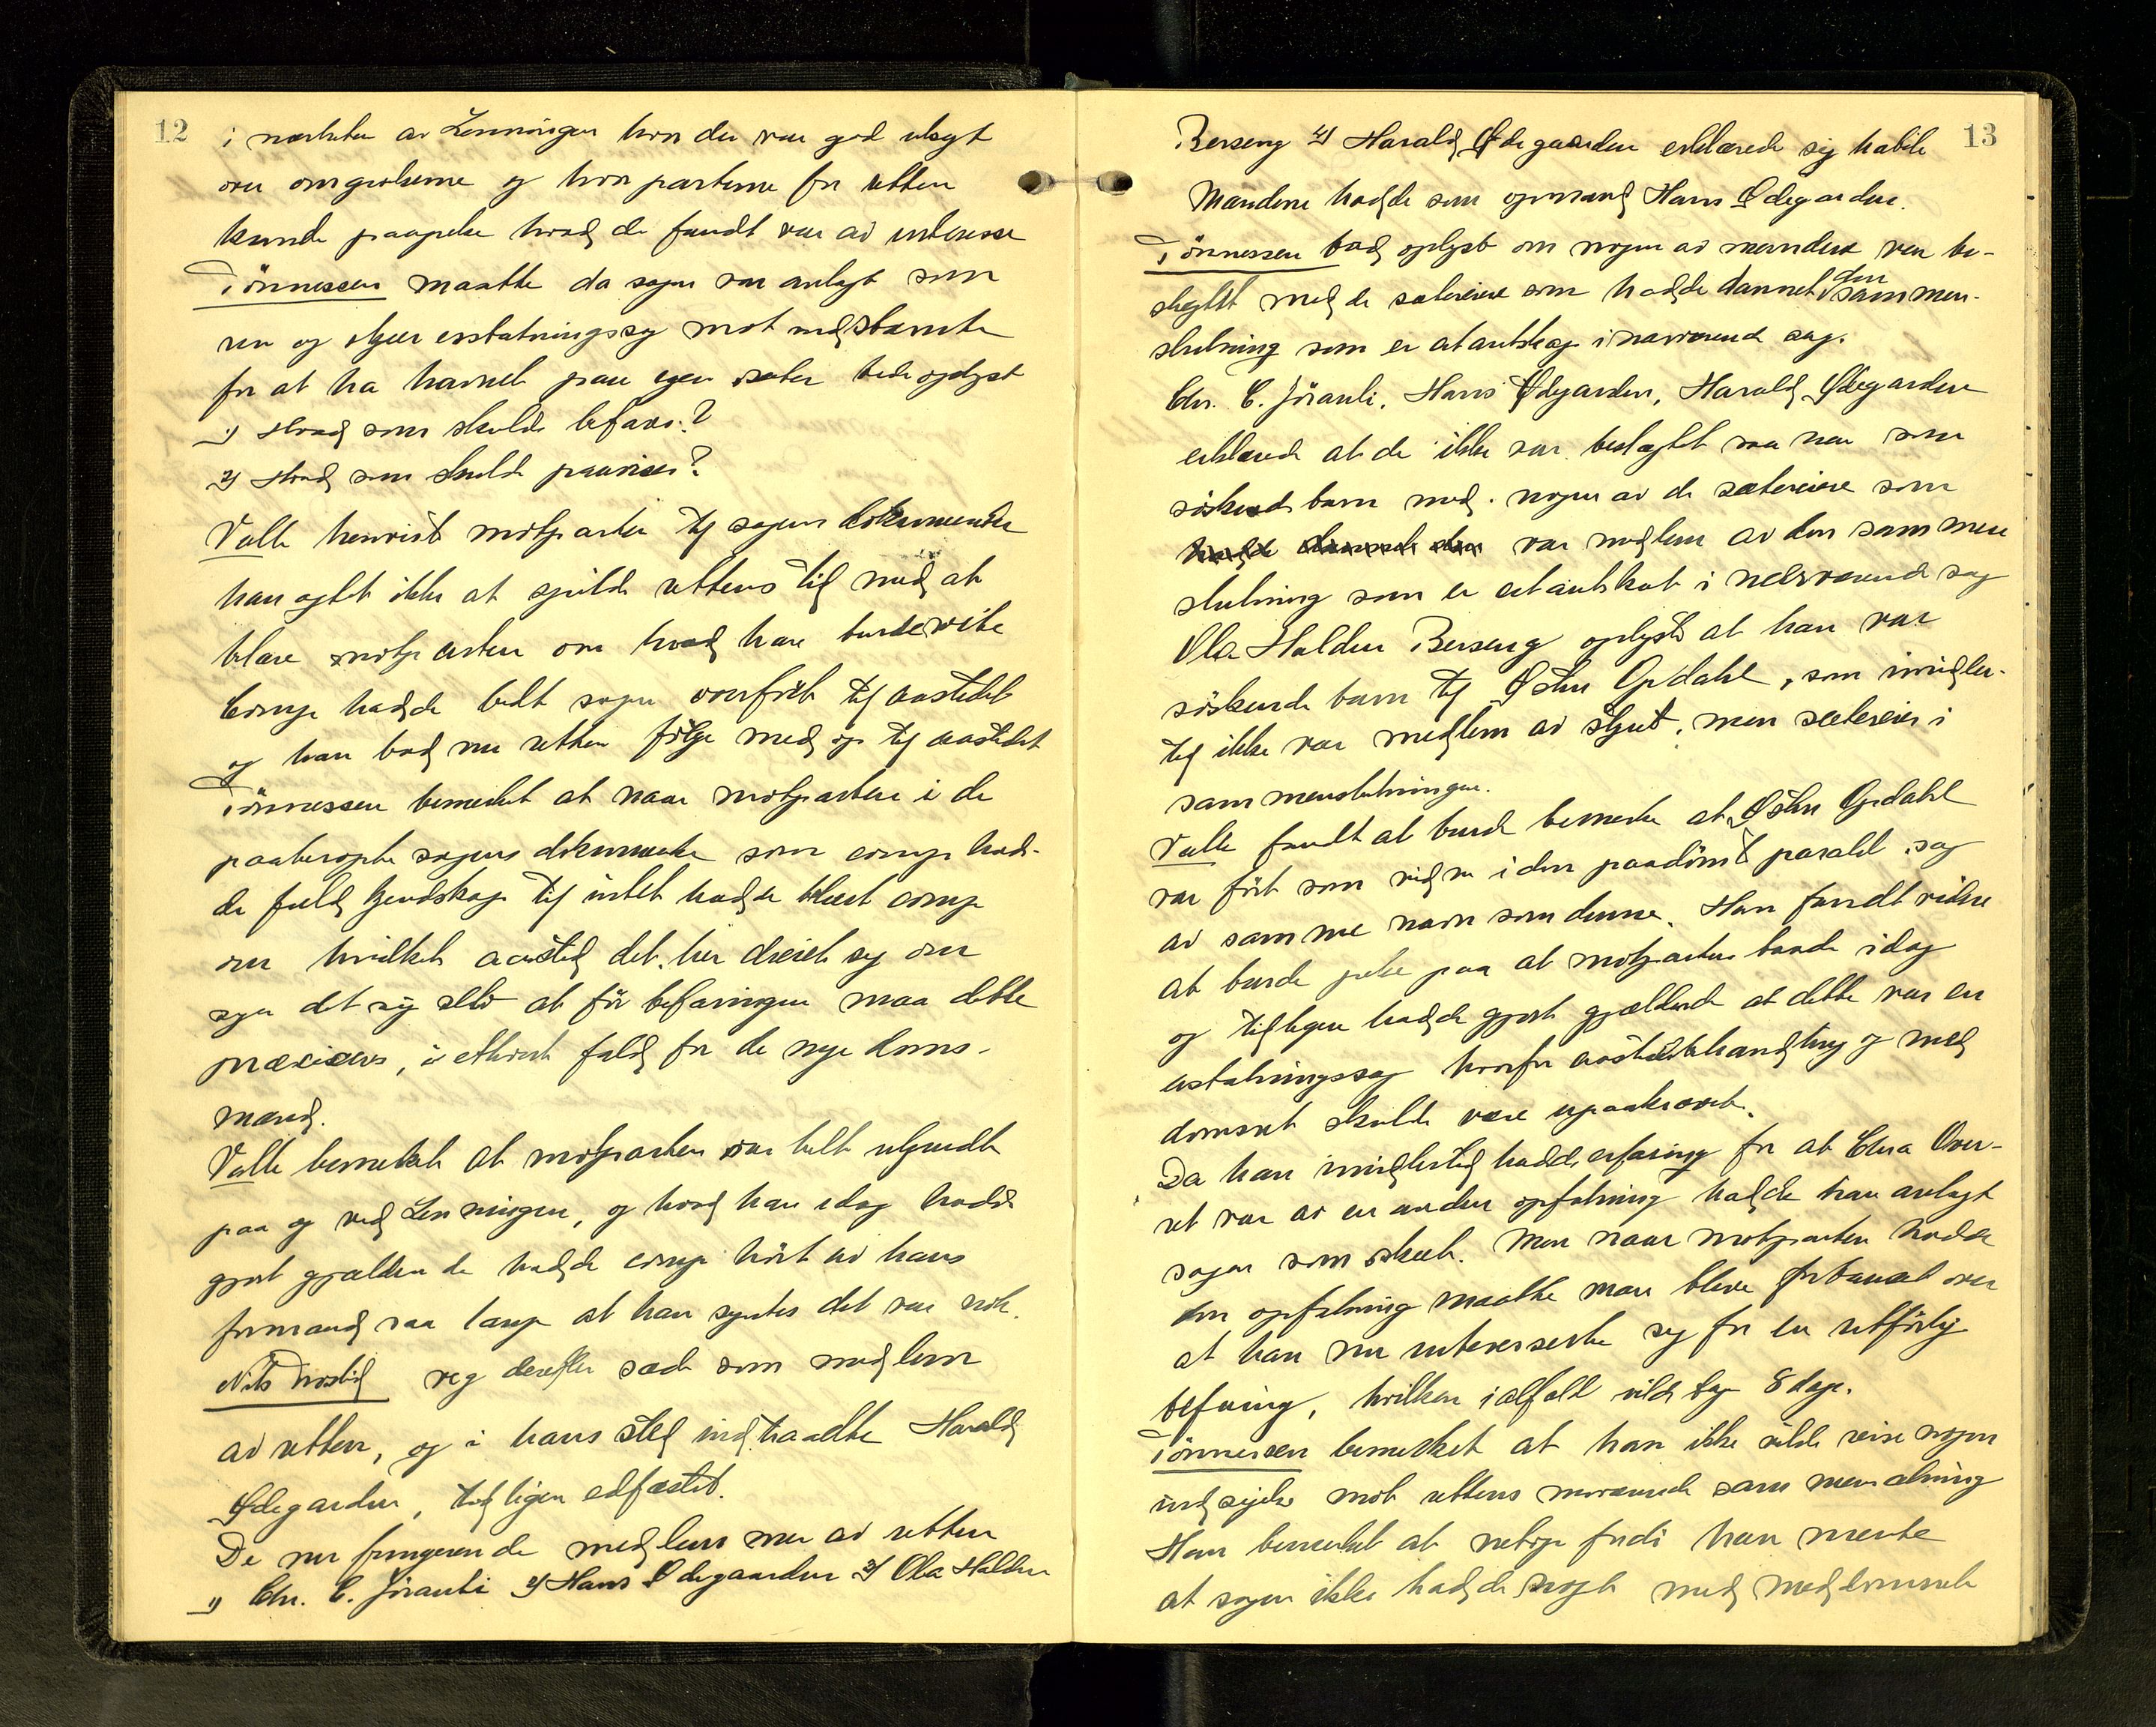 12
i nærheten av Lenningen hvor der var god utsigt
over omgivelserne og hvor parterne for retten
kunde paapeke hvad de fandt var av interesse
Tönnessen maatte da sagen var anlagt som
ren og skjær erstatningssag mot medstevnte
for at ha havnet paa egen sæter bede oplyst
1) Hvad som skulde befares?
2) Hvad som skulde paavises?
Valle henviste motparten til sagens dokumenter
han agtet ikke at spilde rettens tid med at
belære motparten om hvad han burde vite
Comp hadde bedt sagen overfört til aastedet
og han bad nu retten fölge med op til aastedet
Tönnessen bemerket at naar motparten i de
paaberopte sagens dokumenter som comp had-
de fuld kjendskap til intet hadde blæst comp
om hvilket aasted det her dreiet sig om
syn det sig selv at för befaringen maa dette
præciseres, i ethvert fald for de nye doms-
mænd.
Valle bemerket at motparten var helt ukjendt
paa og ved Lenningen, og hvad han idag hadde
gjort gjældende hadde comp hört av hans
formand saa længe at han syntes det var nok.
Nils Trostid veg derefter sæde som medlem
av retten, og i hans sted indtraadte Harald
Ödegarden, tidligere edfæstet.
De nu fungerende medlemmer av retten
1) Chr. C. Jöranli 2) Hans Ödegaarden 3) Ola Halden
13
Berseng 4) Harald Ödegaarden erklærede sig habile
Mændene hadde som opmand Hans Ödegarden.
Tönnessen bad oplyst om nogen av mændene var be-
slegtet med de sætereiere som hadde dannet den sammen-
slutning som er citantskap i nærværende sag.
Chr. C. Jöranli, Hans Ödegarden, Harald Ödegarden
erklærede at de ikke var beslegtet saa nær som
söskendebarn med nogen av de sætereiere som
hadde dannet den var medlem av den sammen
slutning som er citantskab i nærværende sag
Ola Halden Berseng oplyste at han var
söskendebarn til Östen Opdahl, som imidler-
tid ikke var medlem av styret, men sætereier i
sammenslutningen.
Valle fandt at burde bemerke at Östen Opdahl
var fört som vidne i den paadömte paralel sag
av samme navn som denne. Han fandt videre
at burde peke paa at motparten baade idag
og tidligere hadde gjort gjældende at dette var en
erstatningssag hvorfor aastedsbehandling og med
domsret skulde være upaakrævet.
Da han imidlertid hadde erfaring for at Elvra Over-
ret var av en anden opfatning hadde han anlagt
sagen som skeet. Men naar motparten hadde
en opfatning maatte man bleve forbauset over
at han nu interesserte sig for en utförlig
befaring, hvilken ialfald vilde tage 8 dage.
Tönnessen bemerket at han ikke vilde reise nogen
indsigelse mot rettens nuværende sammensætning
Han bemerket at netop fordi han mente
at sagen ikke hadde noget med meddomsret